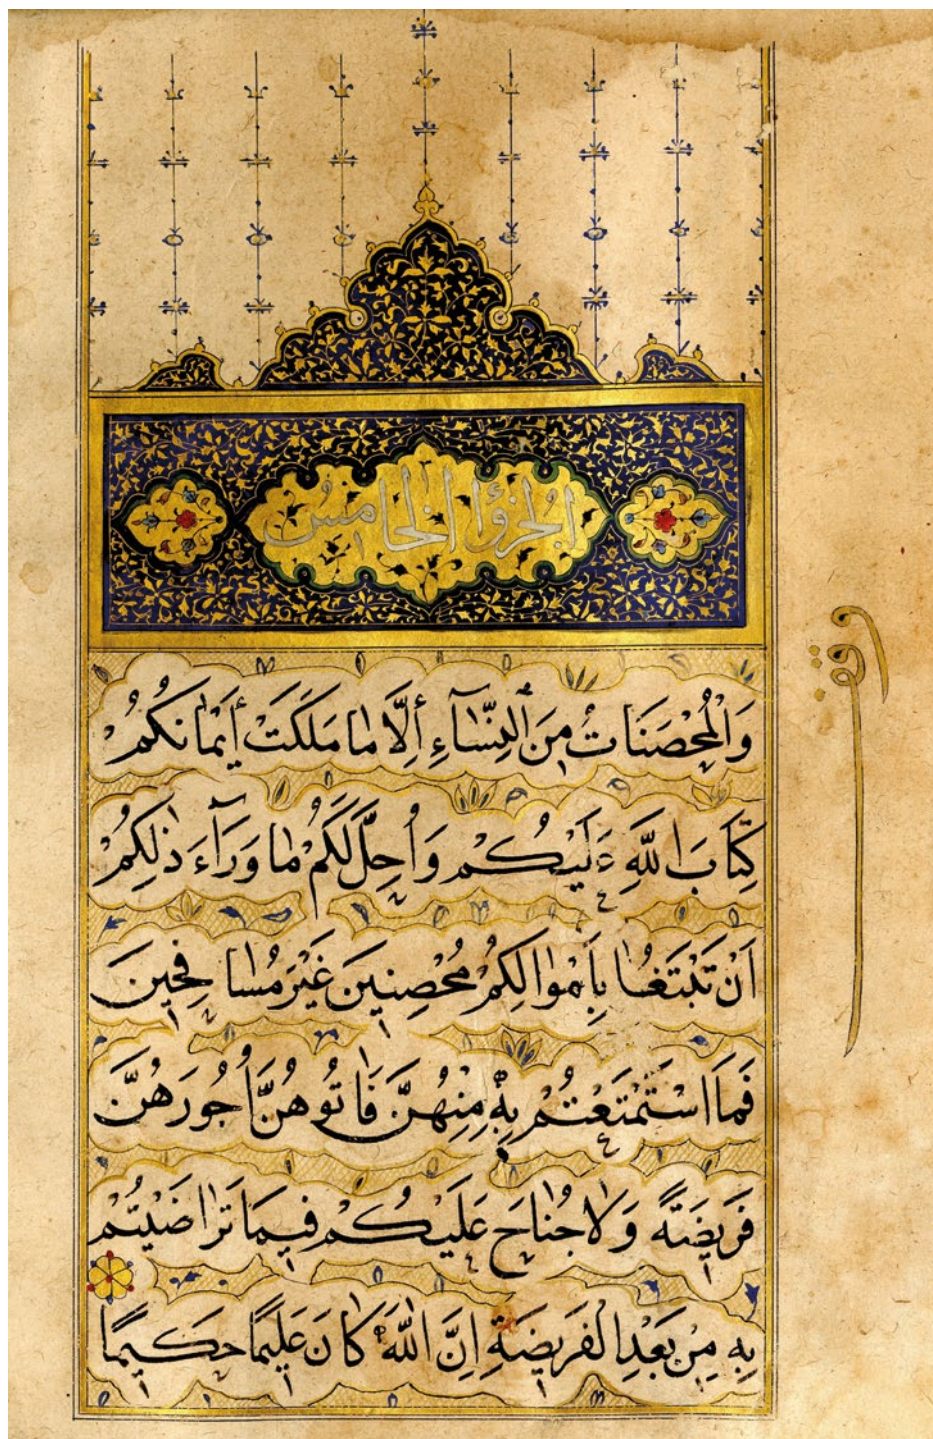 الجزؤا الخامس
وَالْمُحْصَنَاتُ مِنَ النِّسَآءِ اِلَّا مَا مَلَكَتْ أَيْمَانُكُمْ
كِتَابَ اللّٰهِ عَلَيْكُمْ وَاُحِلَّ لَكُمْ مَا وَرَآءَ ذٰلِكُمْ
اَنْ تَبْتَغُوا بِاَمْوَالِكُمْ مُحْصِنِينَ غَيْرَ مُسَافِحِينَ
فَمَا اسْتَمْتَعْتُمْ بِهِ مِنْهُنَّ فَاٰتُوهُنَّ اُجُورَهُنَّ
فَرِيضَةً وَلَا جُنَاحَ عَلَيْكُمْ فِيمَا تَرَاضَيْتُمْ
بِهِ مِنْ بَعْدِ الْفَرِيضَةِ اِنَّ اللّٰهَ كَانَ عَلِيمًا حَكِيمًا
وقف